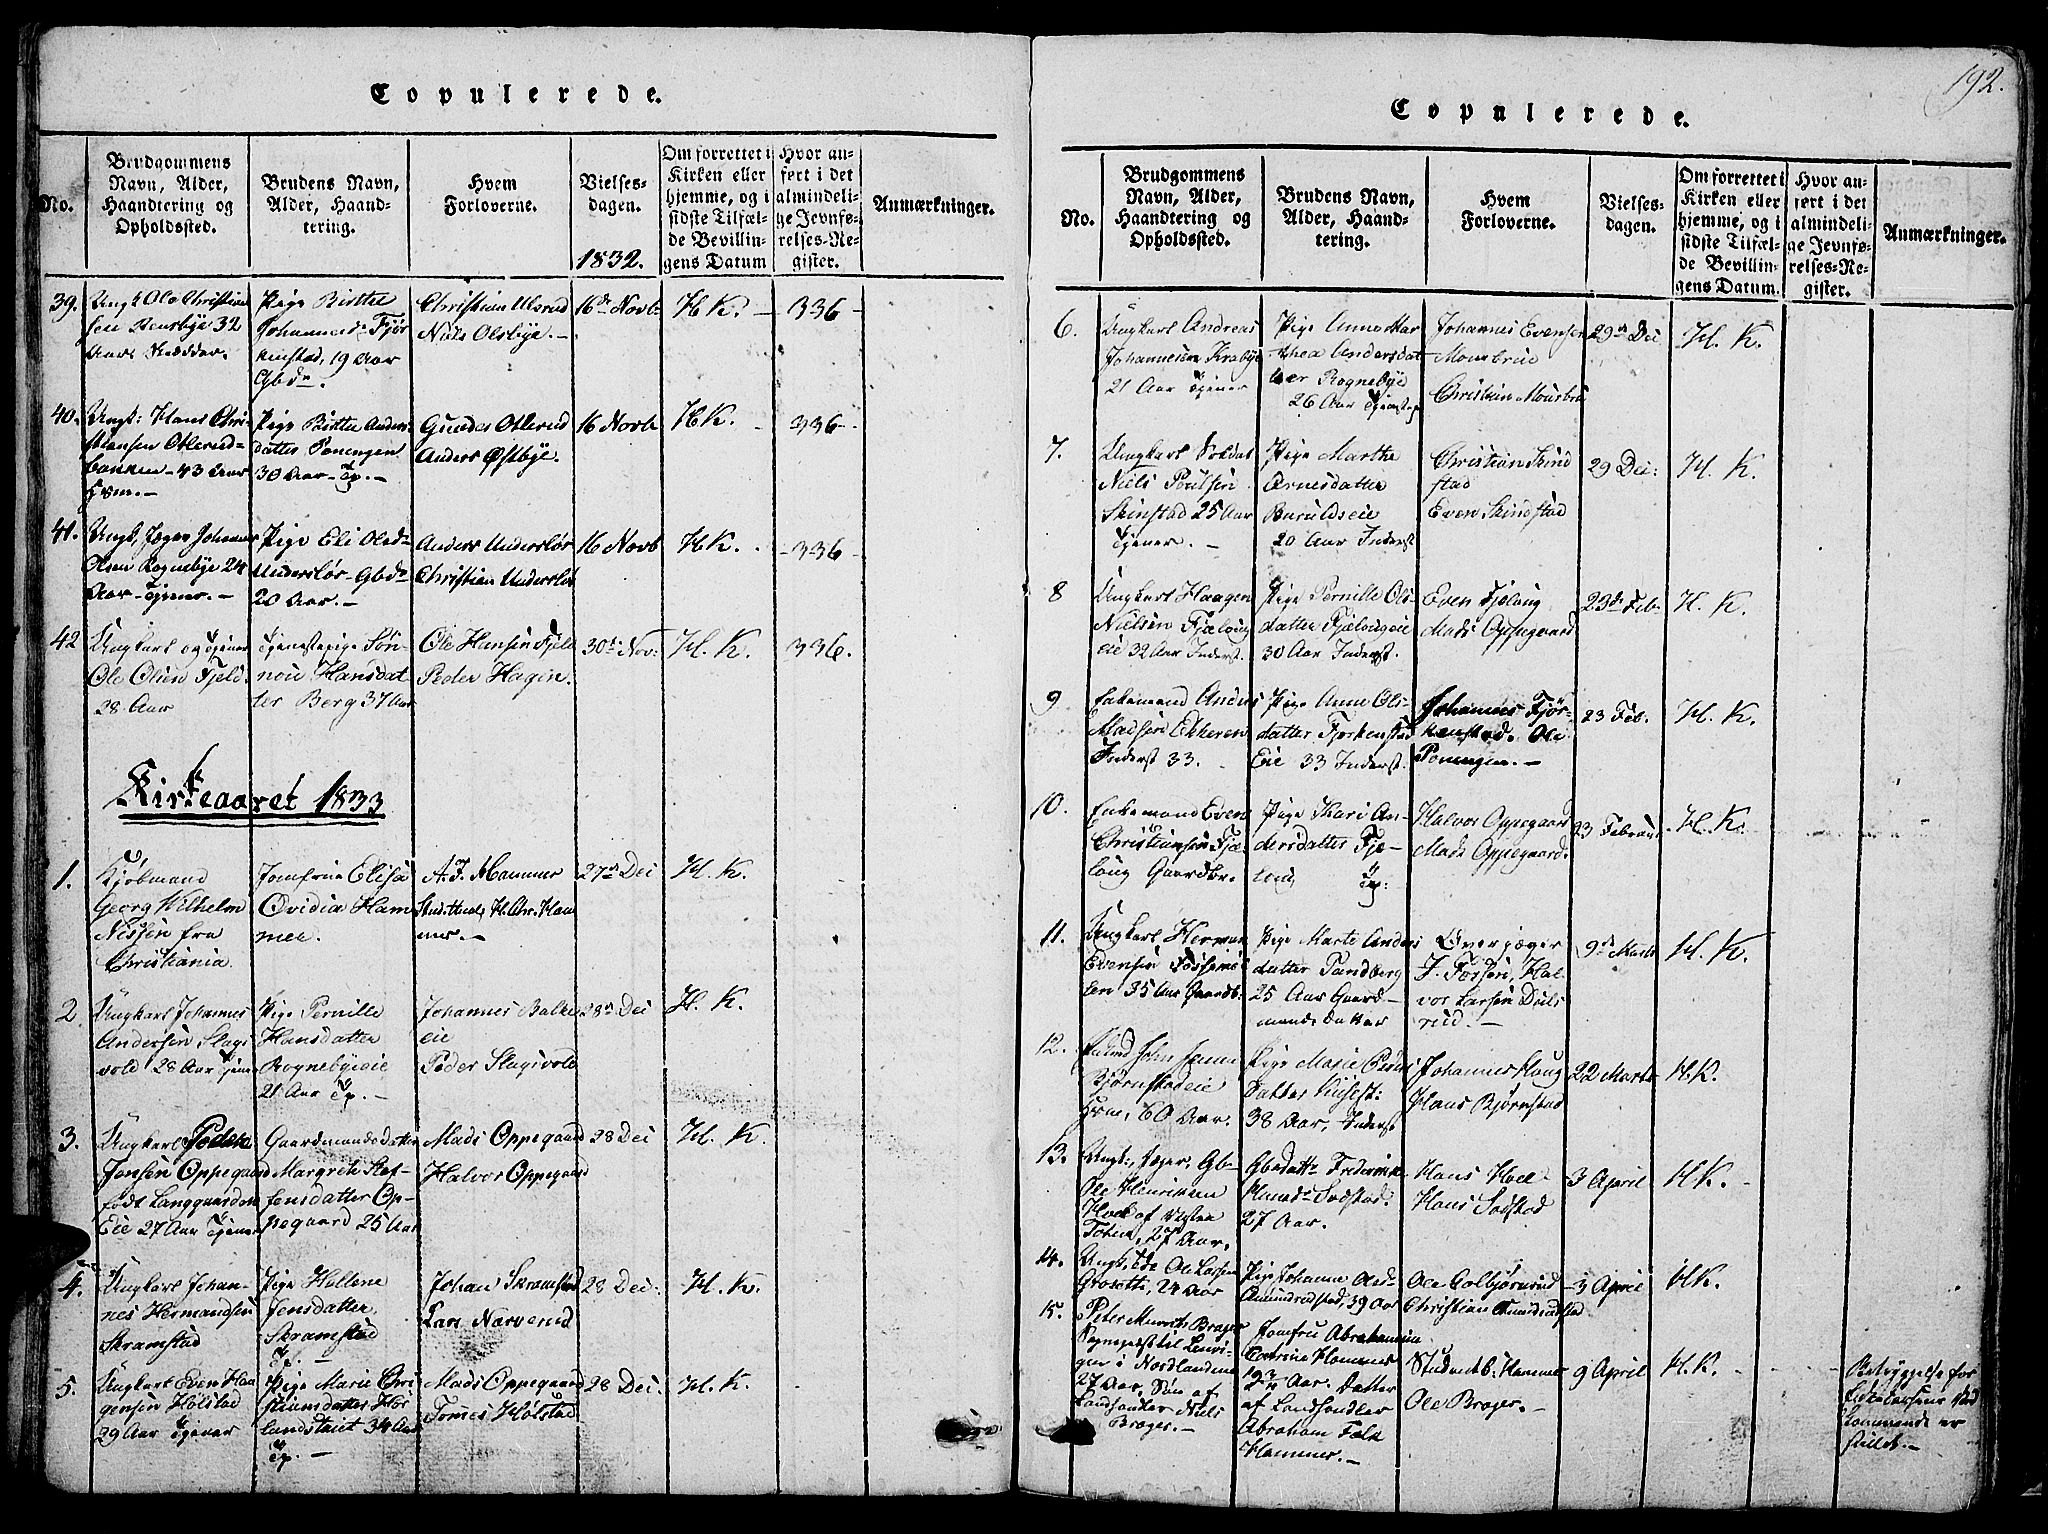 192.
Copulerede.
No.
Brudgommens
Navn, Alder,
Haandtering og
Opholdssted.
Brudens Navn,
Alder, Haand-
tering.
Hvem
Forloverne.
Vielses-
dagen.
1832.
Om forrettet i
Kirken eller
hjemme, og i
sidste Tilfæl-
de Bevillin-
gens Datum
Hvor an-
ført i det
almindeli-
ge Jevnfø-
relses-Re-
gister.
Anmærkninger.
39.
Ungk Ole Christian
sen 32
Aar
Pige Birthe
Johannesd Fjør
kenstad, 19 Aar
Gbd
Christian Ulsrud
Niels Olsbye.
16de Novb
H K.
336
40.
Ungk: Hans Chri-
stiansen Ollerud-
banken 43 Aar
Husm.
Pige Birthe Anders
datter Poningen
30 Aar
Gunder Ollerud
Anders Østbye.
16 Novb
H K.
336
41.
Ungk. Jæger Johannes
Olsen Rognebye 24
Aar Tjener.
Pige Eli Olsd
Underslør Gbd
20 Aar.
Anders Underslør
Christian Underslør
16 Novb
H K.
336
42
Ungkarl og Tjener
Ole Olsen Fjeld
28 Aar
Tjenestepige Søn-
nou Hansdat
ter Berg 37 Aar
Ole Hansen Fjeld
Peder Hagen.
30te Nov:
H. K.
336.
Kirkeaaret 1833
1.
Kjøbmand
Georg Wilhelm
Nissen fra
Christiania.
Jomfrue Elise
Ovidia Ham
mer.
A. F. Hammer
H. Chr. Ham
mer.
27de Dec
H. K.
2
Ungkarl Johannes
Andersen Slagi
vold 28 Aar Tjener
Pige Pernille
Hansdatter
Rognebyeeie
21 Aar Tp.
Johannes Balke
eie
Peder Slagsvold
28de Dec
H. K.
3.
Ungkarl Peder
Jonsen Oppegaard
født Langgaard
Eie 27 Aar Tjener
Gaardmandsdatter
Margrethe Stef
fensdatter Op-
pegaard 25 Aar
Mads Oppegaard
Halvor Oppegaard
28 Dec
H. K.
4.
Ungkarl Johan-
nes Hermandsen
Skramstad
Pige Hellene
Jensdatter
Skramstad
Tp.
Johan Skramstad
Lars Narverud
28 Dec:
H. K.
5.
Ungkarl Even Haa
gensen Holstad
29 Aar Tjener
Pige Marie Chri
stiansdatter Hol
34 Aar
Tp.
Mads Oppegaard
Tomes Holstad
28 Dec:
H. K.
Copulerede.
No.
Brudgommens
Navn, Alder,
Haandtering og
Opholdssted.
Brudens Navn,
Alder, Haand-
tering.
Hvem
Forloverne.
Vielses-
dagen.
Om forrettet i
Kirken eller
hjemme, og i
sidste Tilfæl-
de Bevillin-
gens Datum.
Hvor an-
ført i det
almindeli-
ge Jevnfø-
relses-Re-
gister.
Anmærkninger.
6.
Ungkarl Andreas
Johannesen Krabye
21 Aar Tjener
Pige Anne Mar
thea Andersdat
ter Rognebye
26 Aar
Johannes Evensen
Mourbrue
Christian Mourbru
29de Dec
H. K.
7.
Ungkarl Soldat
Niels Poulsen
Skinstad 25 Aar
Tjener.
Pige Marthe
Arnesdatter
20 Aar Inderst
Christian Skind
stad
Even Skindstad
29 Dec:
H. K.
8
Ungkarl Haagen
Nielsen Fjeloug
eie 32 Aar Inderst.
Pige Pernille Ols-
datter Fjelougeie
30 Aar Inderst.
Even Fjeloug
Mads Oppegaard
23de Feb.
H. K.
9
Enkemand Anders
Madsen Ekkeren
Inderst 33.
Pige Anne Ols-
datter Fjørkenstad
Eie 33 Inderst.
Johannes Fjør-
kenstad. Ole
Poningen.
23 Feb.
H. K.
10.
Enkemand Even
Christiansen Fjæ-
loug Gaardbr.
Pige Kari An-
dersdatter Fjæ-
loug Tp:
Halvor Oppegaard
Mads Oppegaard.
23 Februar
H. K.
11.
Ungkarl Herman
Evensen Fossemøl
len 35 Aar Gaardb.
Pige Marte Anders
datter Sandberg
25 Aar Gaard-
mands Datter
Overjæger
J. Forsen, Hal-
vor Larsen Duls
rud.
9de Marts
H. K.
12.
John
Bjørnstadeie
Husm, 60 Aar.
Pige Marie Peders
datter
38 Aar, Inderst
Johannes Haug
Hans Bjørnstad
22 Marts
H K.
13.
Ungk., Jæger, Gb
Ole Henriksen
Hoel af Vestre
Toten, 27 Aar.
Gbdatt Frederikke
Sodstad.
27 Aar.
Hans Hoel
Hans Sodstad
3 April
H K.
14.
Ungk. Ole Larsen
Grosett, 24 Aar
Pige Johanne
Amundrudstad, 39 Aar
Ole Colbjørnsrud
Christian Amundrudstad
3 April
H K.
15.
Peter Munch Brager
Sogneprest til Lenvi-
gen i Nordlandene
27 Aar, Søn af
Landhandler Niels
Brager.
Jomfru Abrahamine
Catrine Hammer
19 3/4 Aar. Datter
af Landhandler
Abraham Falk
Hammer.
Student B: Hammer
Ole Brager.
9 April
H. K.
for
er